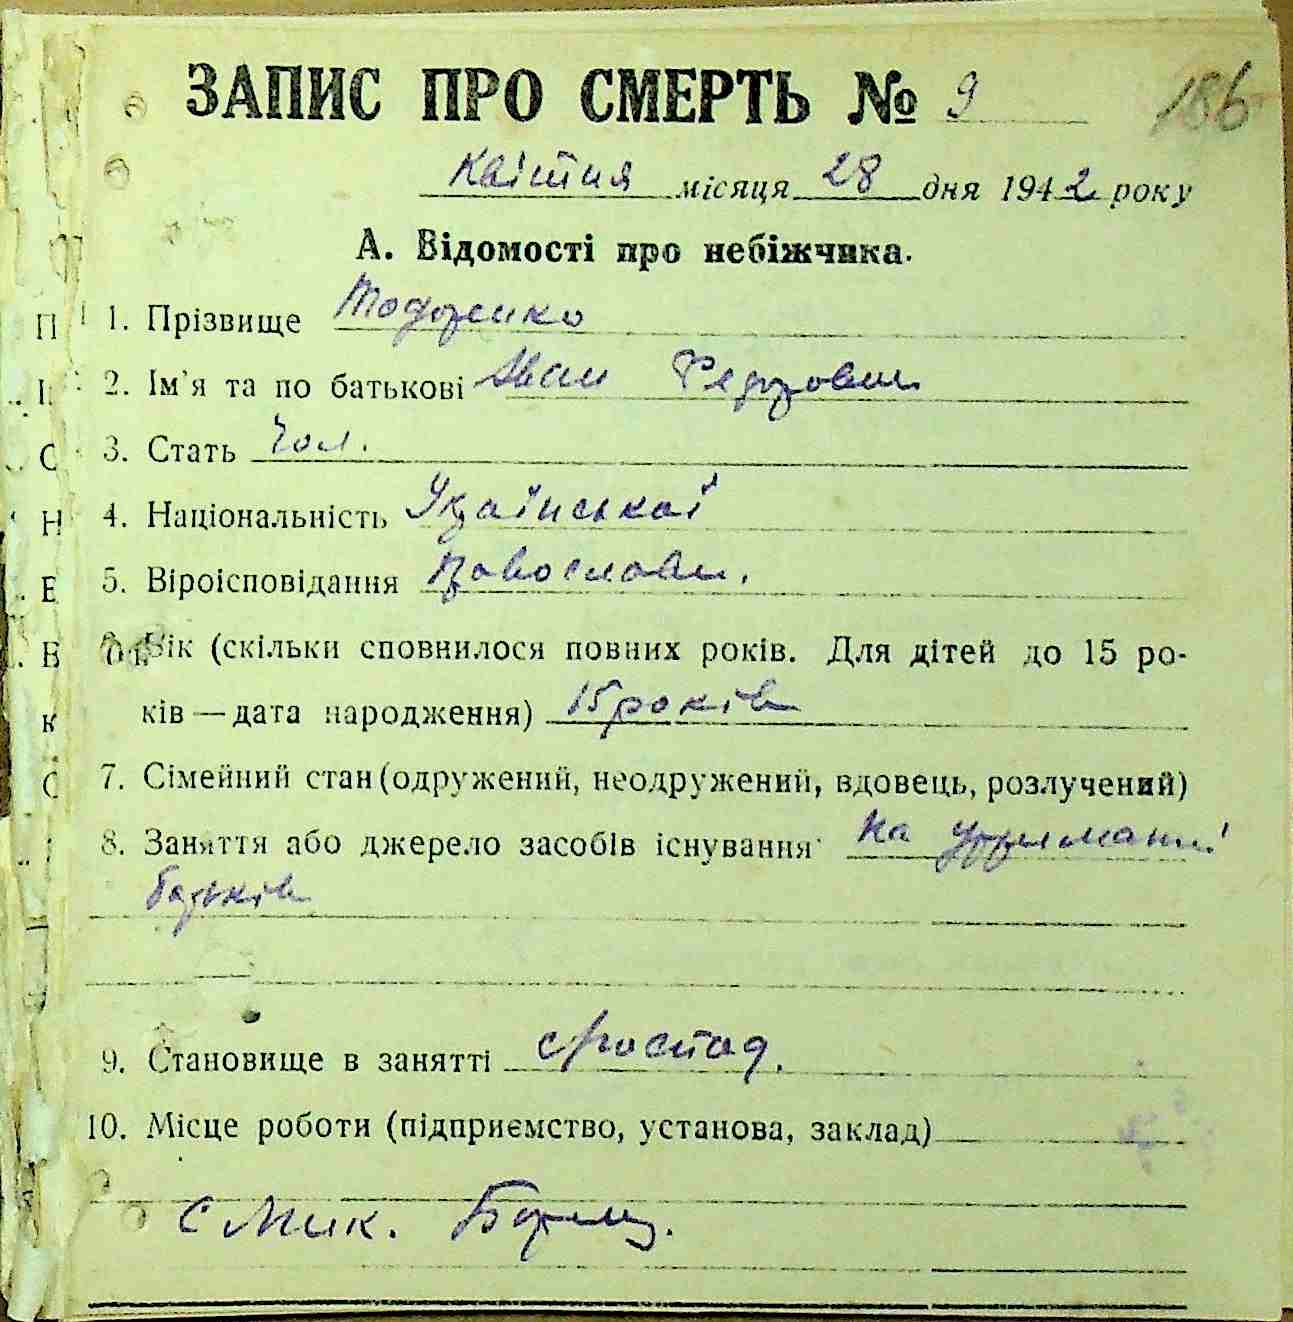 ЗАПИС ПРО СМЕРТЬ № 9
186
квітня місяця 28 дня 1942 року
А. Відомості про небіжчика.
П 1. Прізвище Тодоренко
2. Ім'я та по батькові Іван Федорович
С 3. Стать Чол.
Н 4. Національність Української
Е 5. Віроісповідання православн.
В 6. Вік (скільки сповнилося повних років. Для дітей до 15 ро-
к ків — дата народження) 15 років
С 7. Сімейний стан (одружений, неодружений, вдовець, розлучений)
8. Заняття або джерело засобів існування на утриманні
батьків
9. Становище в занятті
10. Місце роботи (підприємство, установа, заклад)
с Мик.